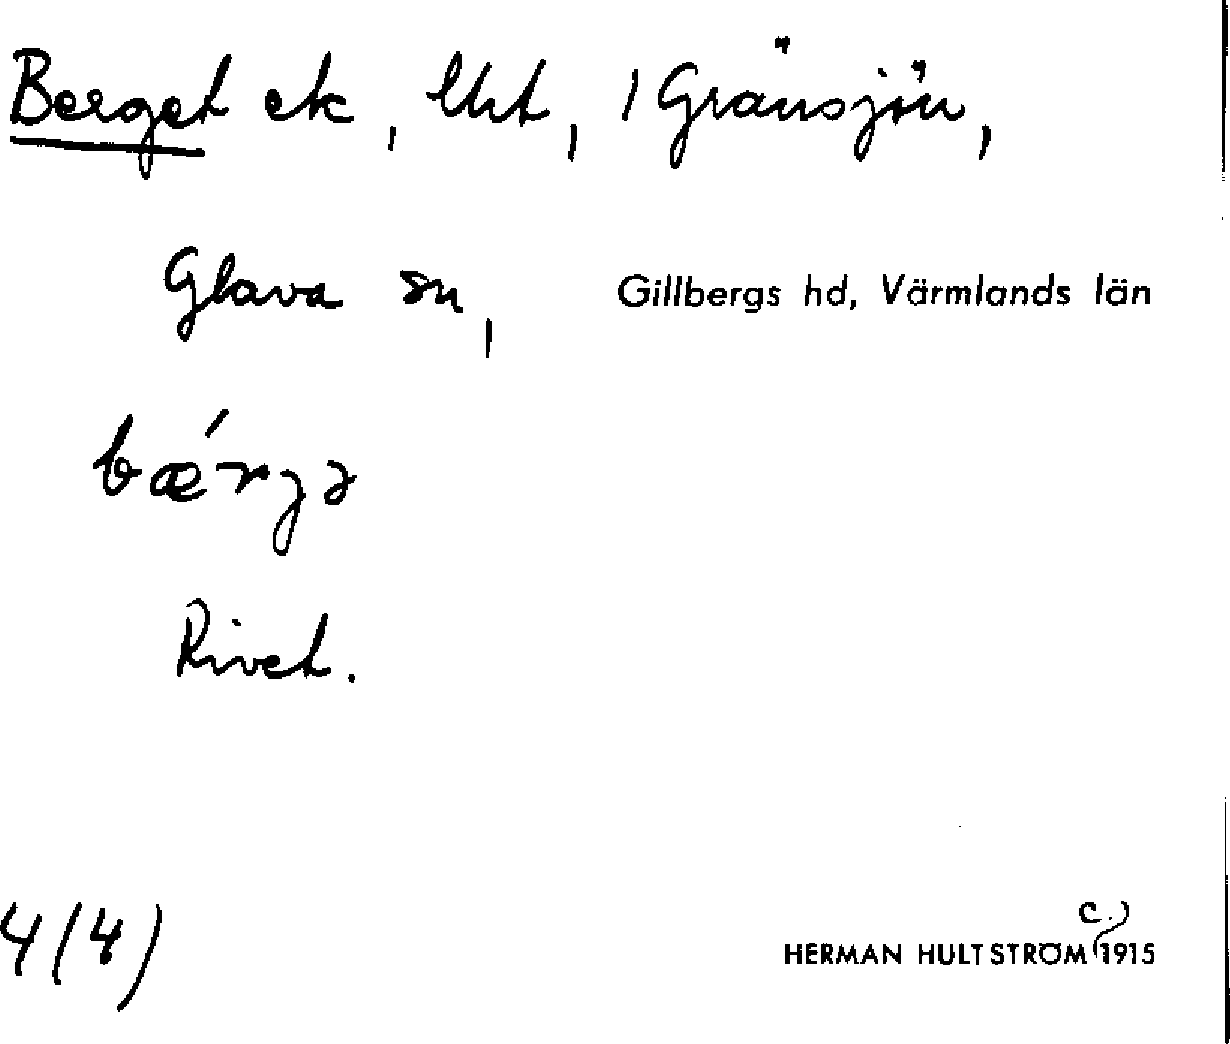 Berget etc, lht, i Gränsjön,
Glava sn, Gillbergs hd, Värmlands län
bǽrgə
Rivet.
4(4)
HERMAN HULTSTRÖM c. 1915